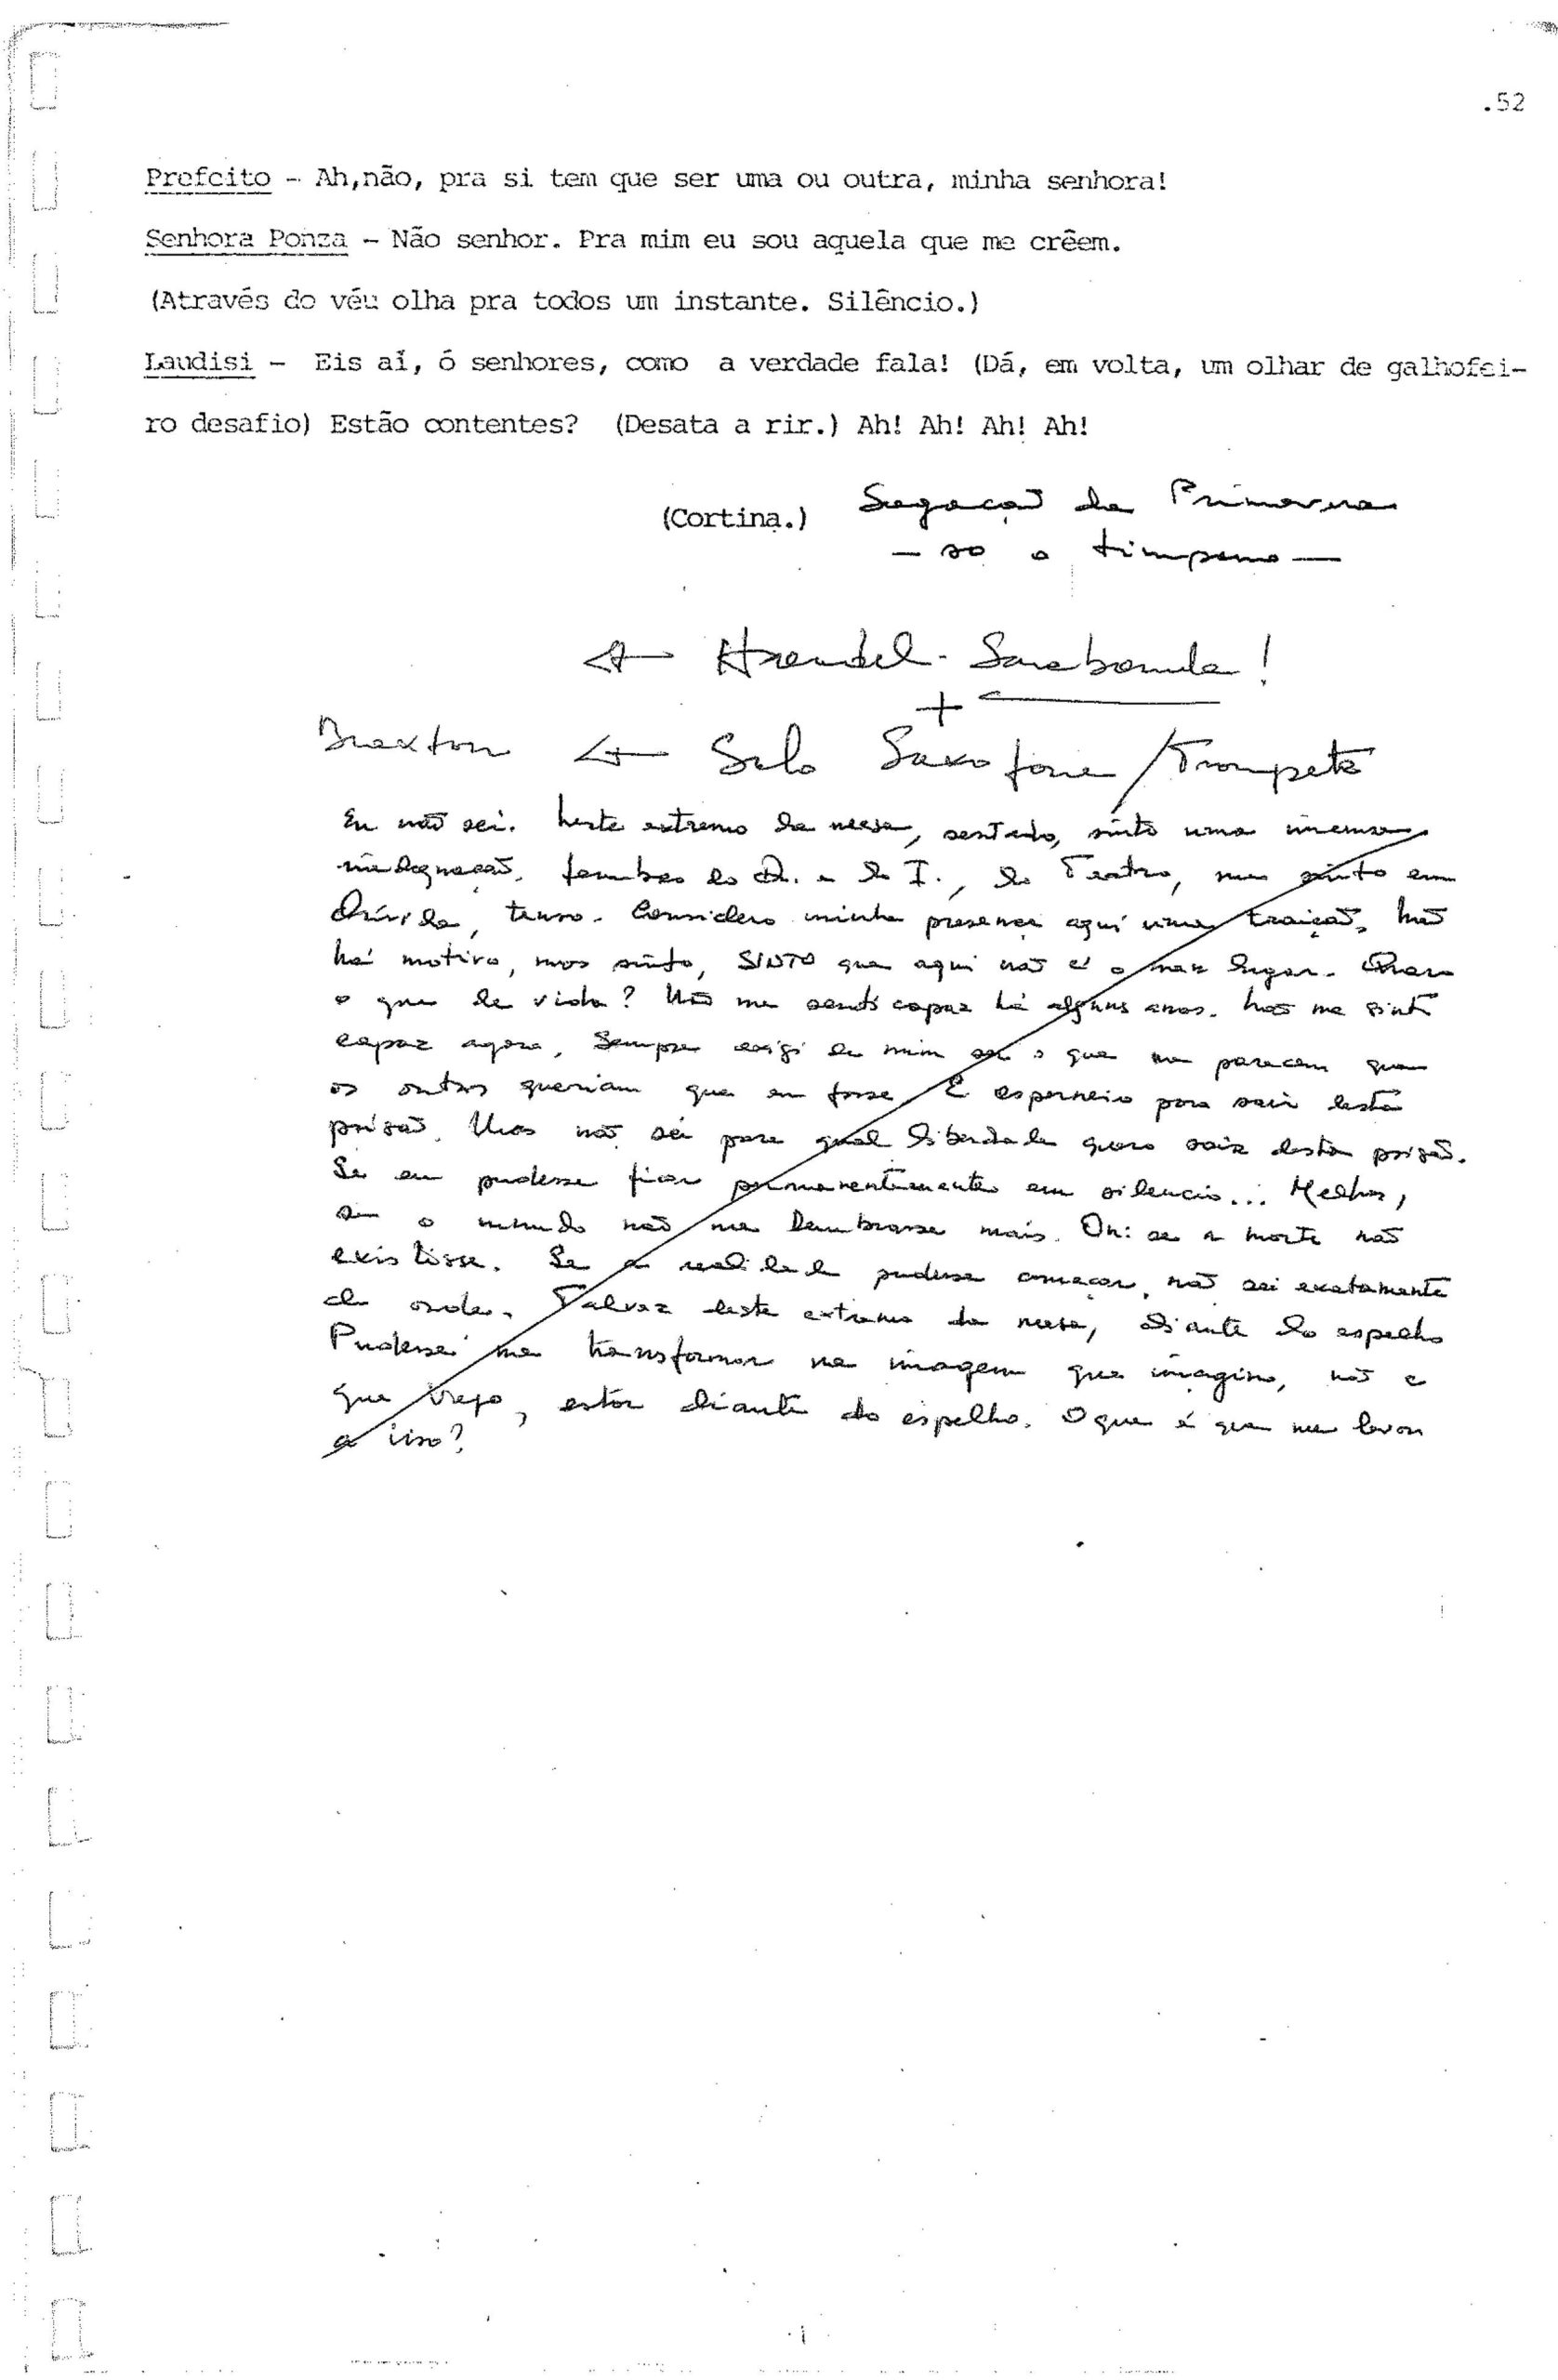 .52
Prefeito - Ah,não, pra si tem que ser uma ou outra, minha senhora!
Senhora Ponza - Não senhor. Pra mim eu sou aquela que me crêem.
(Através do véu olha pra todos um instante. Silêncio.)
Laudisi - Eis aí, ó senhores, como a verdade fala! (Dá, em volta, um olhar de galhofei-
ro desafio) Estão contentes? (Desata a rir.) Ah! Ah! Ah! Ah!
(Cortina.) Sagacaõ da Primavera
- so o timpano -
Haendel - Sarabanda!
+
Braxton Solo Saxofone/Trompete
Eu não sei. Neste extremo da mesa, sentado, sinto uma imensa
indignação, lembro do D. e do I., do Teatro, me sinto em
dúvida, tenso. Considero minha presença aqui uma traição. Não
há motivo, mas sinto, SINTO que aqui não é o meu lugar. Quero
o que da vida? Não me senti capaz há alguns anos. Não me sinto
capaz agora. Sempre exigi de mim ser o que me parecem que
os outros queriam que eu fosse. E esperneio para sair desta
prisão. Mas não sei para qual liberdade quero sair desta prisão.
Se eu pudesse ficar permanentemente em silencio... Melhor,
se o mundo não me lembrasse mais. Oh: se a morte não
existisse. Se a realidade pudesse começar, não sei exatamente
de onde. Talvez deste extremo da mesa, diante do espelho
Pudesse me transformar na imagem que imagino, não a
que vejo, estar diante do espelho. O que é que me levou
a isso?